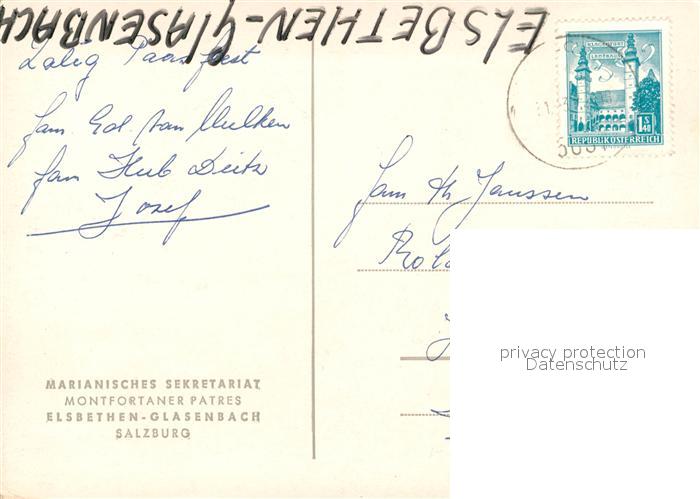 ELSBETHEN-GLASENBACH
Zalig Paasfeest
fam. Ed. van Mulken
fam Hub Deitz
Jozef
MARIANISCHES SEKRETARIAT
MONTFORTANER PATRES
ELSBETHEN-GLASENBACH
SALZBURG
KLAGENFURT
LANDHAUS
1.40 S
REPUBLIK ÖSTERREICH
fam th Janssen
privacy protection
Datenschutz